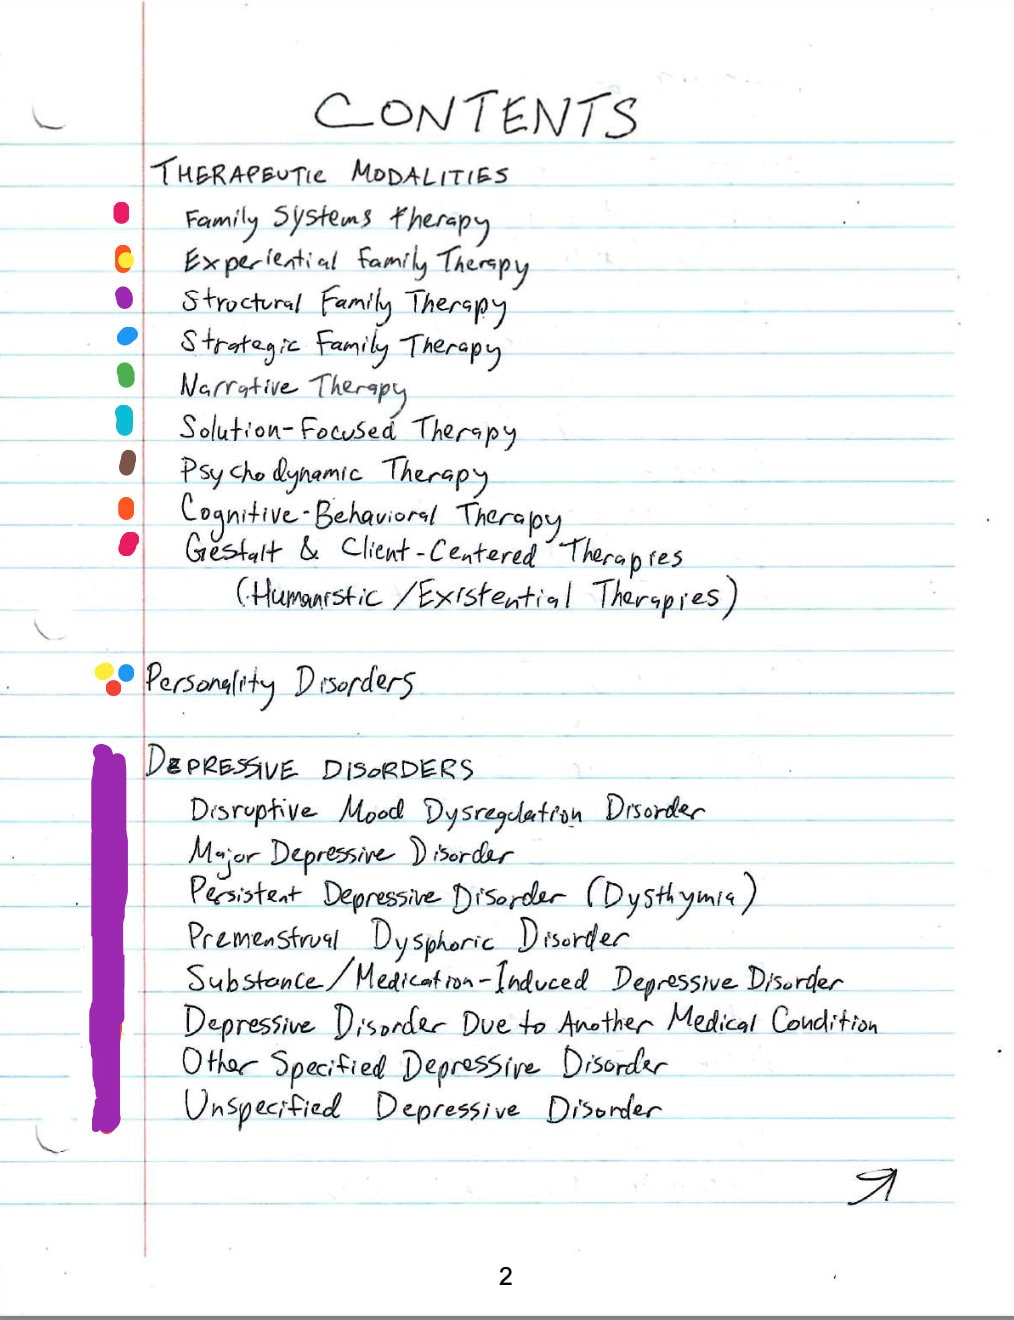 CONTENTS
THERAPEUTIC MODALITIES
Family Systems therapy
Experiential Family Therapy
Structural Family Therapy
Strategic Family Therapy
Narrative Therapy
Solution-Focused Therapy
Psychodynamic Therapy
Cognitive-Behavioral Therapy
Gestalt & Client-Centered Therapies
(Humanistic/Existential Therapies)
Personality Disorders
DEPRESSIVE DISORDERS
Disruptive Mood Dysregulation Disorder
Major Depressive Disorder
Persistent Depressive Disorder (Dysthymia)
Premenstrual Dysphoric Disorder
Substance/Medication-Induced Depressive Disorder
Depressive Disorder Due to Another Medical Condition
Other Specified Depressive Disorder
Unspecified Depressive Disorder
2